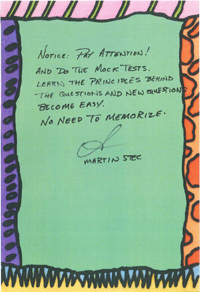 NOTICE: PAY ATTENTION!
AND DO THE MOCK TESTS.
LEARN THE PRINCIPLES BEHIND
THE QUESTIONS AND NEW QUESTION
BECOME EASY.
NO NEED TO MEMORIZE.
MARTIN